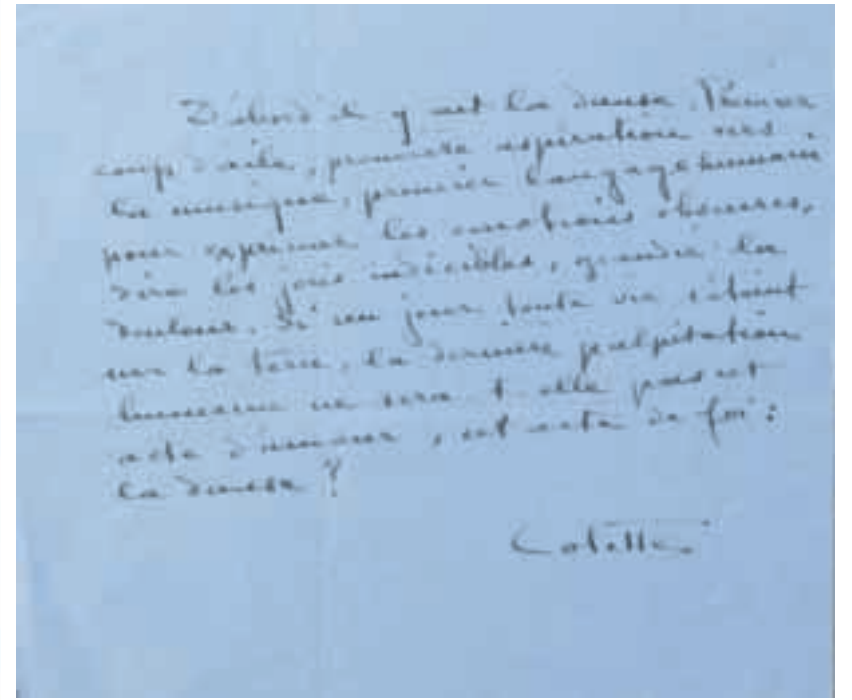 D'abord il y eut la danse. Premier
coup d'aile, première aspiration vers
la musique, premier langage humain
pour exprimer les émotions obscures,
dire les joies indicibles, grandir la
douleur. Si un jour toute vie s'éteint
sur la terre, la dernière palpitation
humaine ne sera-t-elle pas cet
acte d'amour, cet acte de foi :
la danse ?
Colette